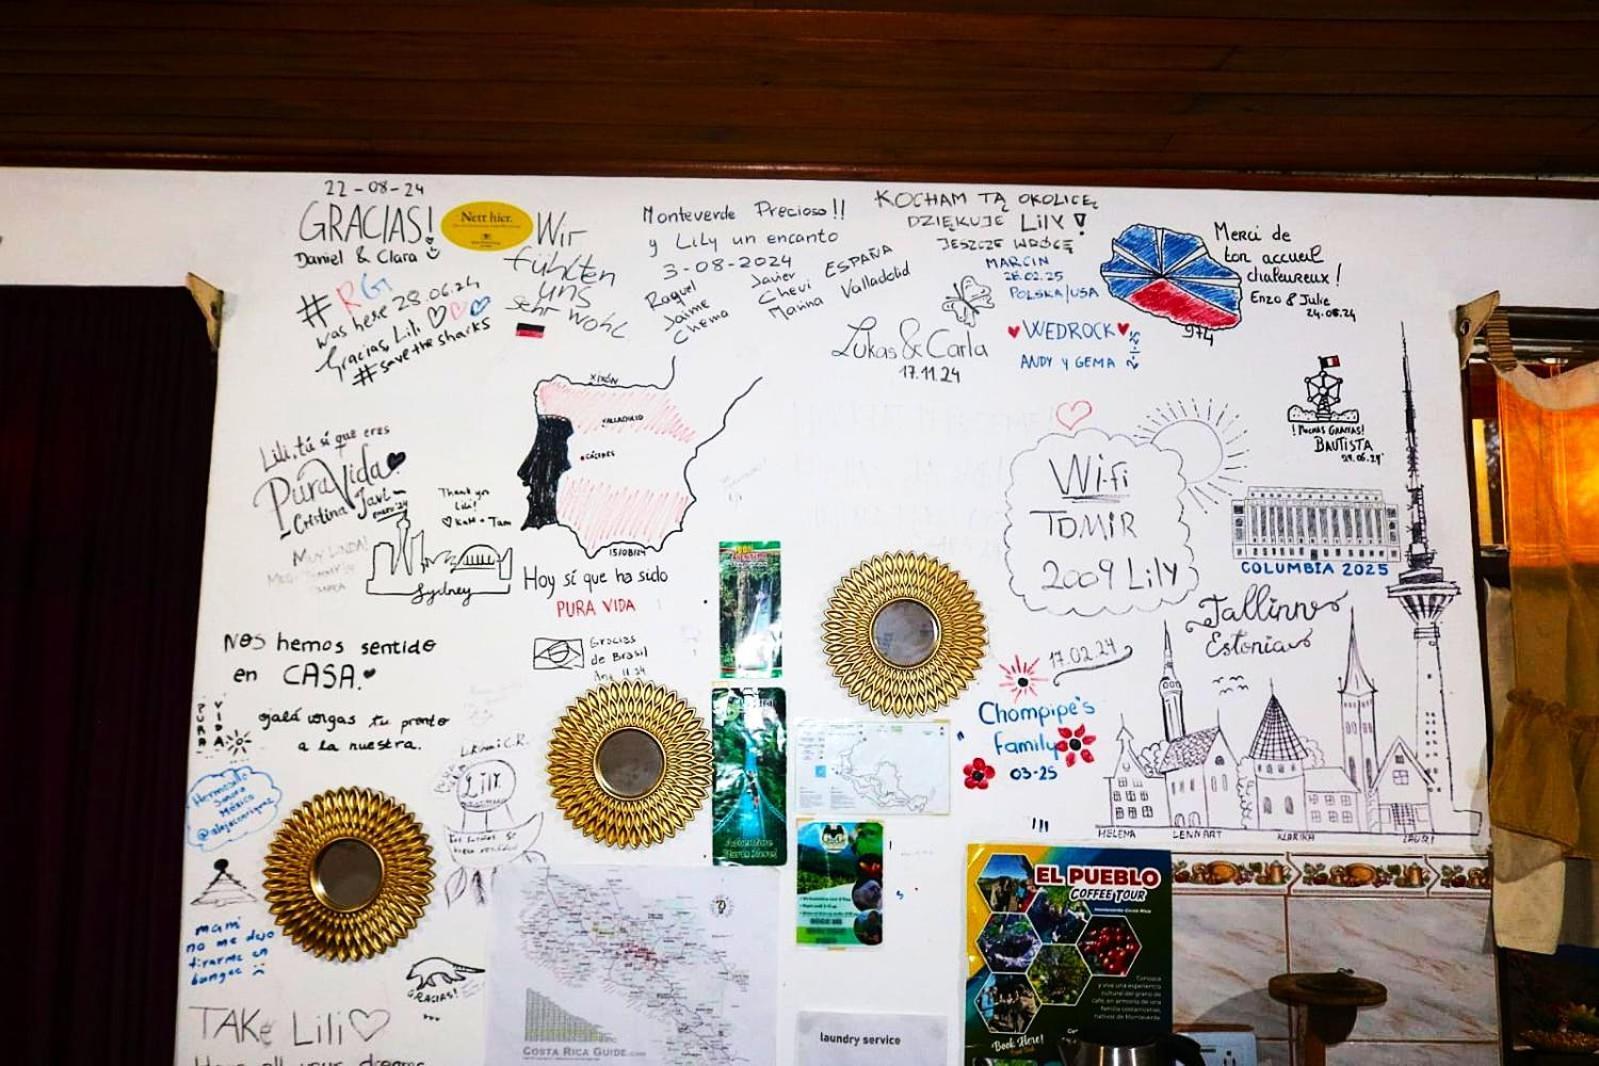 22-08-24
GRACIAS!
Daniel & Clara
Nett hier.
Wir
fühlten
uns
sehr wohl
# RGT
was here 28.06.24
Gracias, Lili
#save the sharks
Monteverde Precioso!!
y Lily un encanto
3-08-2024
Raquel
Jaime
Chema
Javier
Chevi
Marina
ESPAÑA
Valladolid
KOCHAM TĄ OKOLICĘ
DZIĘKUJĘ LILY!
JESZCZE WRÓCĘ
MARCIN
26.02.25
POLSKA/USA
Lukas & Carla
17.11.24
WEDROCK
ANDY Y GEMA
974
Merci de
ton accueil
chaleureux!
Enzo & Julie
24.08.24
¡MUCHAS GRACIAS!
BAUTISTA
Lili, tú sí que eres
Pura Vida
Cristina
Javi
enero '24
Thank you
Lili!
MUY LINDA!
Sydney
XIXÓN
VALLADOLID
CÁCERES
15/08/24
Hoy sí que ha sido
PURA VIDA
Gracias
de Brasil
Wifi
TOMIR
2009 Lily
COLUMBIA 2025
Tallinn
Estonia
HELENA
LENNART
KLARIKA
LAURI
Nos hemos sentido
en CASA.
ojalá vengas tu pronto
a la nuestra.
PURA
VIDA
17.02.24
Chompipe's
family
03-25
Hermosillo
Sonora
México
LILY
mami
no me dejo
tirarme en
bungee
GRACIAS!
TAKE Lili
COSTA RICA GUIDE.com
laundry service
EL PUEBLO
COFFEE TOUR
Monteverde Costa Rica
Conoce
y vive una experiencia
cultural del grano de
café, en armonía de una
familia costarricense,
nativos de Monteverde.
Book Here!